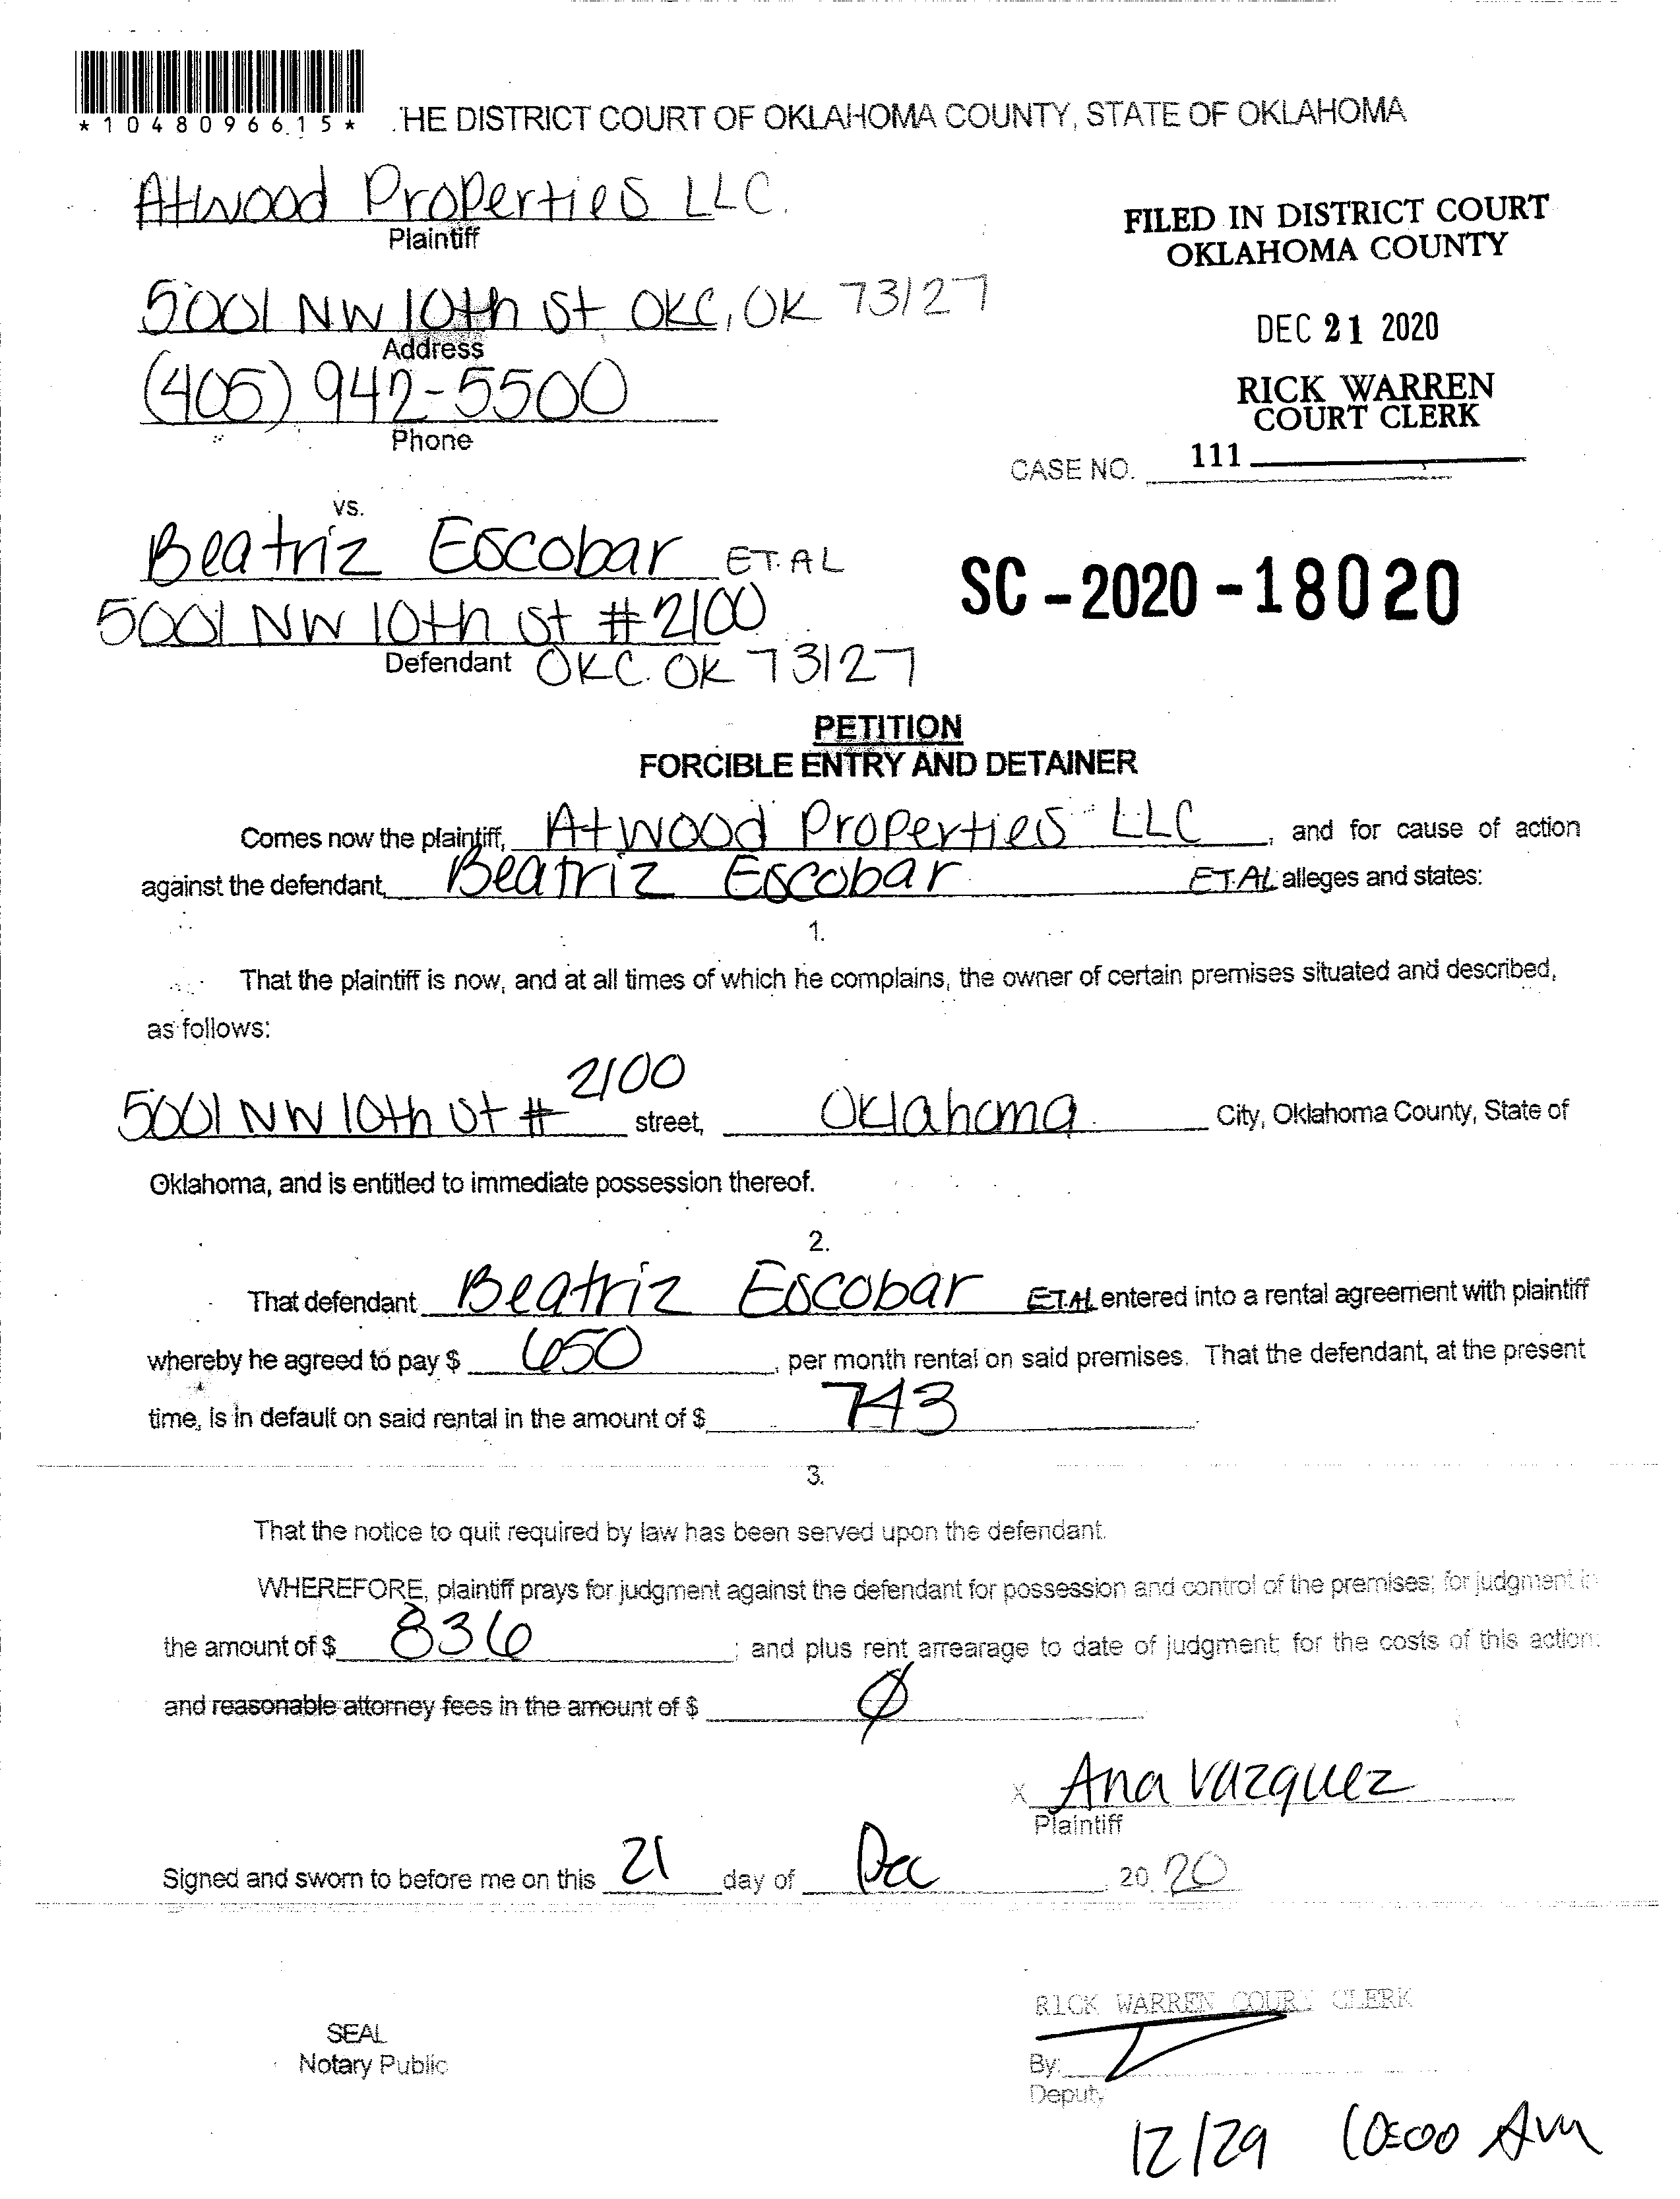 *1048096615*
HE DISTRICT COURT OF OKLAHOMA COUNTY, STATE OF OKLAHOMA
Atwood Properties LLC.
Plaintiff
FILED IN DISTRICT COURT
OKLAHOMA COUNTY
5001 NW 10th St OKC, OK 73127
Address
DEC 21 2020
(405) 942-5500
Phone
RICK WARREN
COURT CLERK
CASE NO. 111
vs.
Beatriz Escobar ET.AL
5001 NW 10th St #2100
Defendant OKC. OK 73127
SC-2020-18020
PETITION
FORCIBLE ENTRY AND DETAINER
Comes now the plaintiff, Atwood Properties LLC, and for cause of action
against the defendant, Beatriz Escobar ET.AL alleges and states:
1.
That the plaintiff is now, and at all times of which he complains, the owner of certain premises situated and described,
as follows:
5001 NW 10th St # 2100 street, Oklahoma City, Oklahoma County, State of
Oklahoma, and is entitled to immediate possession thereof.
2.
That defendant Beatriz Escobar ET.AL entered into a rental agreement with plaintiff
whereby he agreed to pay $ 650, per month rental on said premises. That the defendant, at the present
time, is in default on said rental in the amount of $ 743.
3.
That the notice to quit required by law has been served upon the defendant.
WHEREFORE, plaintiff prays for judgment against the defendant for possession and control of the premises; for judgment in
the amount of $ 836; and plus rent arrearage to date of judgment; for the costs of this action;
and reasonable attorney fees in the amount of $ Ø
X Ana Vazquez
Plaintiff
Signed and sworn to before me on this 21 day of Dec, 20 20
RICK WARREN COURT CLERK
SEAL
Notary Public
By:
Deputy
12/29 10:00 AM